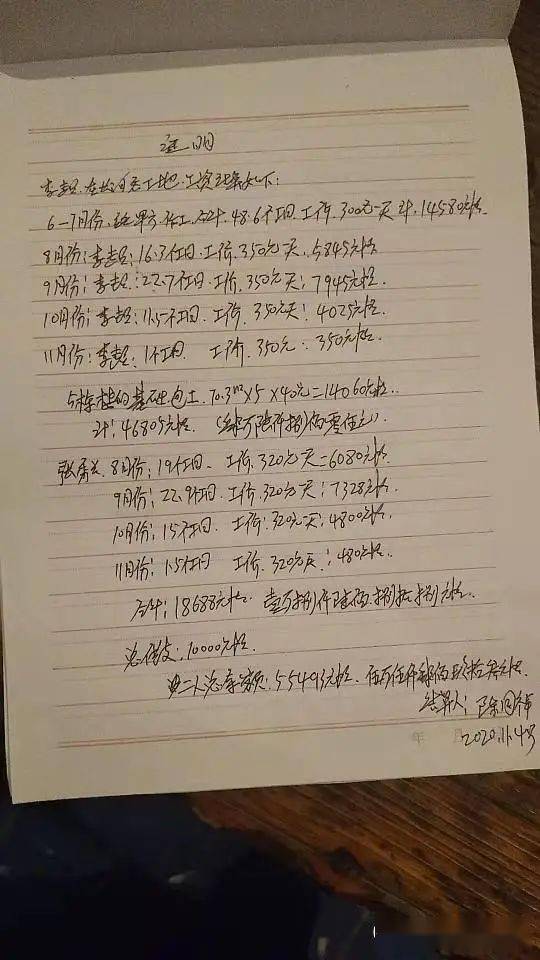 证明
李超在 工地工资结算如下:
6-7月份 合计48.6个工日.工价.300元一天 计.14580元整.
8月份:李超:16.7个工日.工价.350元/天.5845元整
9月份:李超:22.7个工日.工价.350元/天:7945元整.
10月份:李超:11.5个工日.工价.350元/天:4025元整
11月份:李超:1个工日 工价.350元:350元整.
5栋 基础 土.70.3m³×5×40元=14060元整.
计:46805元整.(肆万陆仟捌佰零伍元)
张 8月份:19个工日.工价.320元/天=6080元整.
9月份:22.9个工日.工价.320元/天:7328元整.
10月份:15个工日.工价.320元一天:4800元整.
11月份:1.5个工日 工价.320元/天:480元整.
合计:18688元整.壹万捌仟陆佰捌拾捌元整.
总借支:10000元整.
二人总 额:55493元整.伍万伍仟肆佰玖拾叁元整
结算人:陈
2020.11.4号
年